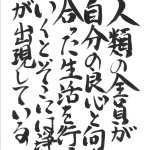 人類の全員が
自分の良心と向
合った生活を行
いくとそこには浄
が出現している